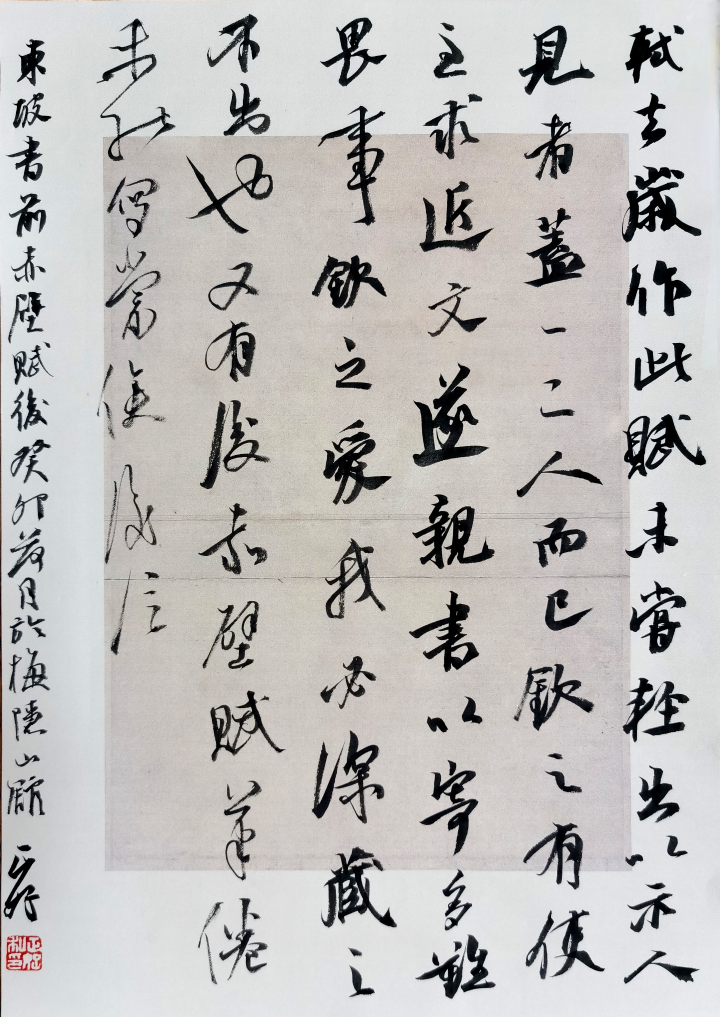 軾去歲作此賦未嘗輕出以示人
見者蓋一二人而已欽之有使
至求近文遂親書以寄多難
畏事欽之愛我必深藏之
不出也又有後赤壁賦筆倦
未能寫當俟後信
東坡書前赤壁賦後癸卯荷月於梅隱山館